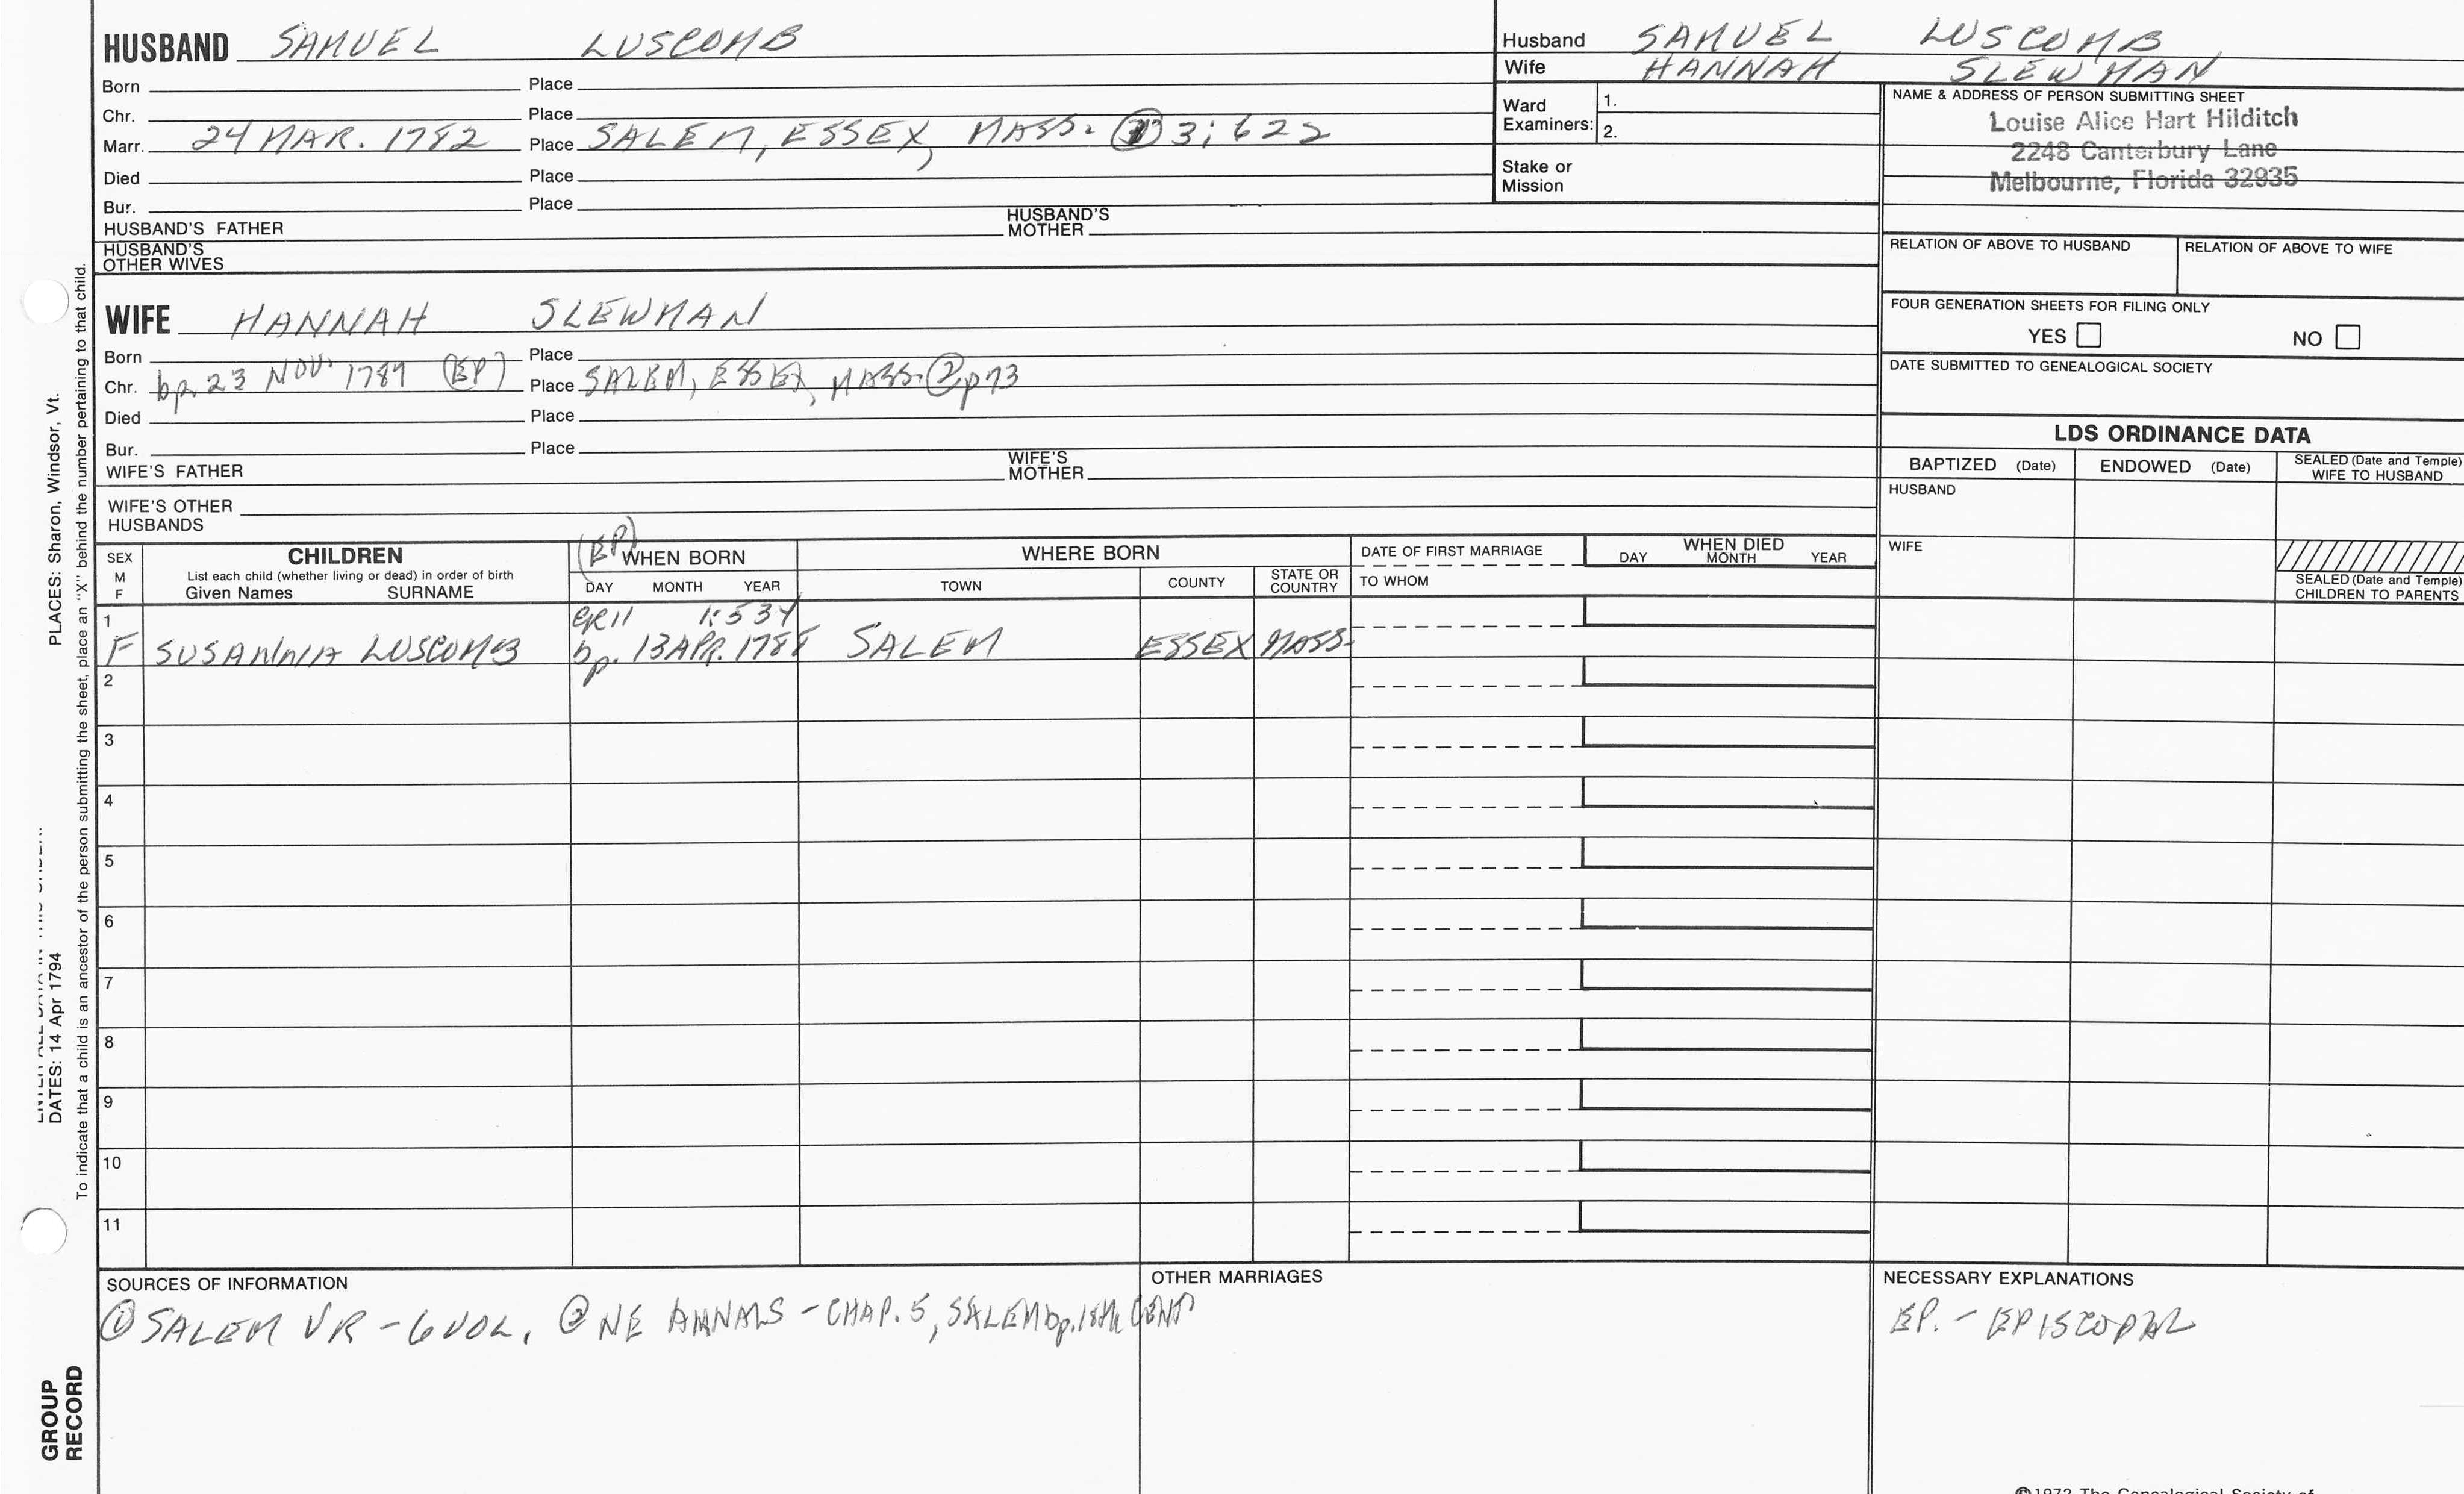 HUSBAND SAMUEL LUSCOMB
Born Place
Chr. Place
Marr. 24 MAR. 1782 Place SALEM, ESSEX, MASS. ① 3; 622
Died Place
Bur. Place
HUSBAND'S FATHER HUSBAND'S MOTHER
HUSBAND'S OTHER WIVES
Husband SAMUEL LUSCOMB
Wife HANNAH SLEWMAN
Ward Examiners: 1.
2.
Stake or Mission
NAME & ADDRESS OF PERSON SUBMITTING SHEET
Louise Alice Hart Hilditch
2248 Canterbury Lane
Melbourne, Florida 32935
RELATION OF ABOVE TO HUSBAND RELATION OF ABOVE TO WIFE
FOUR GENERATION SHEETS FOR FILING ONLY
YES NO
DATE SUBMITTED TO GENEALOGICAL SOCIETY
WIFE HANNAH SLEWMAN
Born Place
Chr. bp. 23 NOV. 1789 (EP) Place SALEM, ESSEX, MASS. ② p93
Died Place
Bur. Place
WIFE'S FATHER WIFE'S MOTHER
WIFE'S OTHER HUSBANDS
LDS ORDINANCE DATA
BAPTIZED (Date) ENDOWED (Date) SEALED (Date and Temple) WIFE TO HUSBAND
HUSBAND
WIFE
SEALED (Date and Temple) CHILDREN TO PARENTS
SEX M F
CHILDREN
List each child (whether living or dead) in order of birth
Given Names SURNAME
(EP)
WHEN BORN
DAY MONTH YEAR
WHERE BORN
TOWN COUNTY STATE OR COUNTRY
DATE OF FIRST MARRIAGE
TO WHOM
WHEN DIED
DAY MONTH YEAR
1 1:534
F SUSANNA LUSCOMB bp. 13 APR. 1788 SALEM ESSEX MASS.
2
3
4
5
6
7
8
9
10
11
SOURCES OF INFORMATION
① SALEM VR - 6 VOL, ② NE ANNALS - CHAP. 5, SALEM bp. 18th CENT
OTHER MARRIAGES
NECESSARY EXPLANATIONS
EP. - EPISCOPAL
DATES: 14 Apr 1794 PLACES: Sharon, Windsor, Vt.
To indicate that a child is an ancestor of the person submitting the sheet, place an "X" behind the number pertaining to that child.
GROUP
RECORD
©1972 The Genealogical Society of